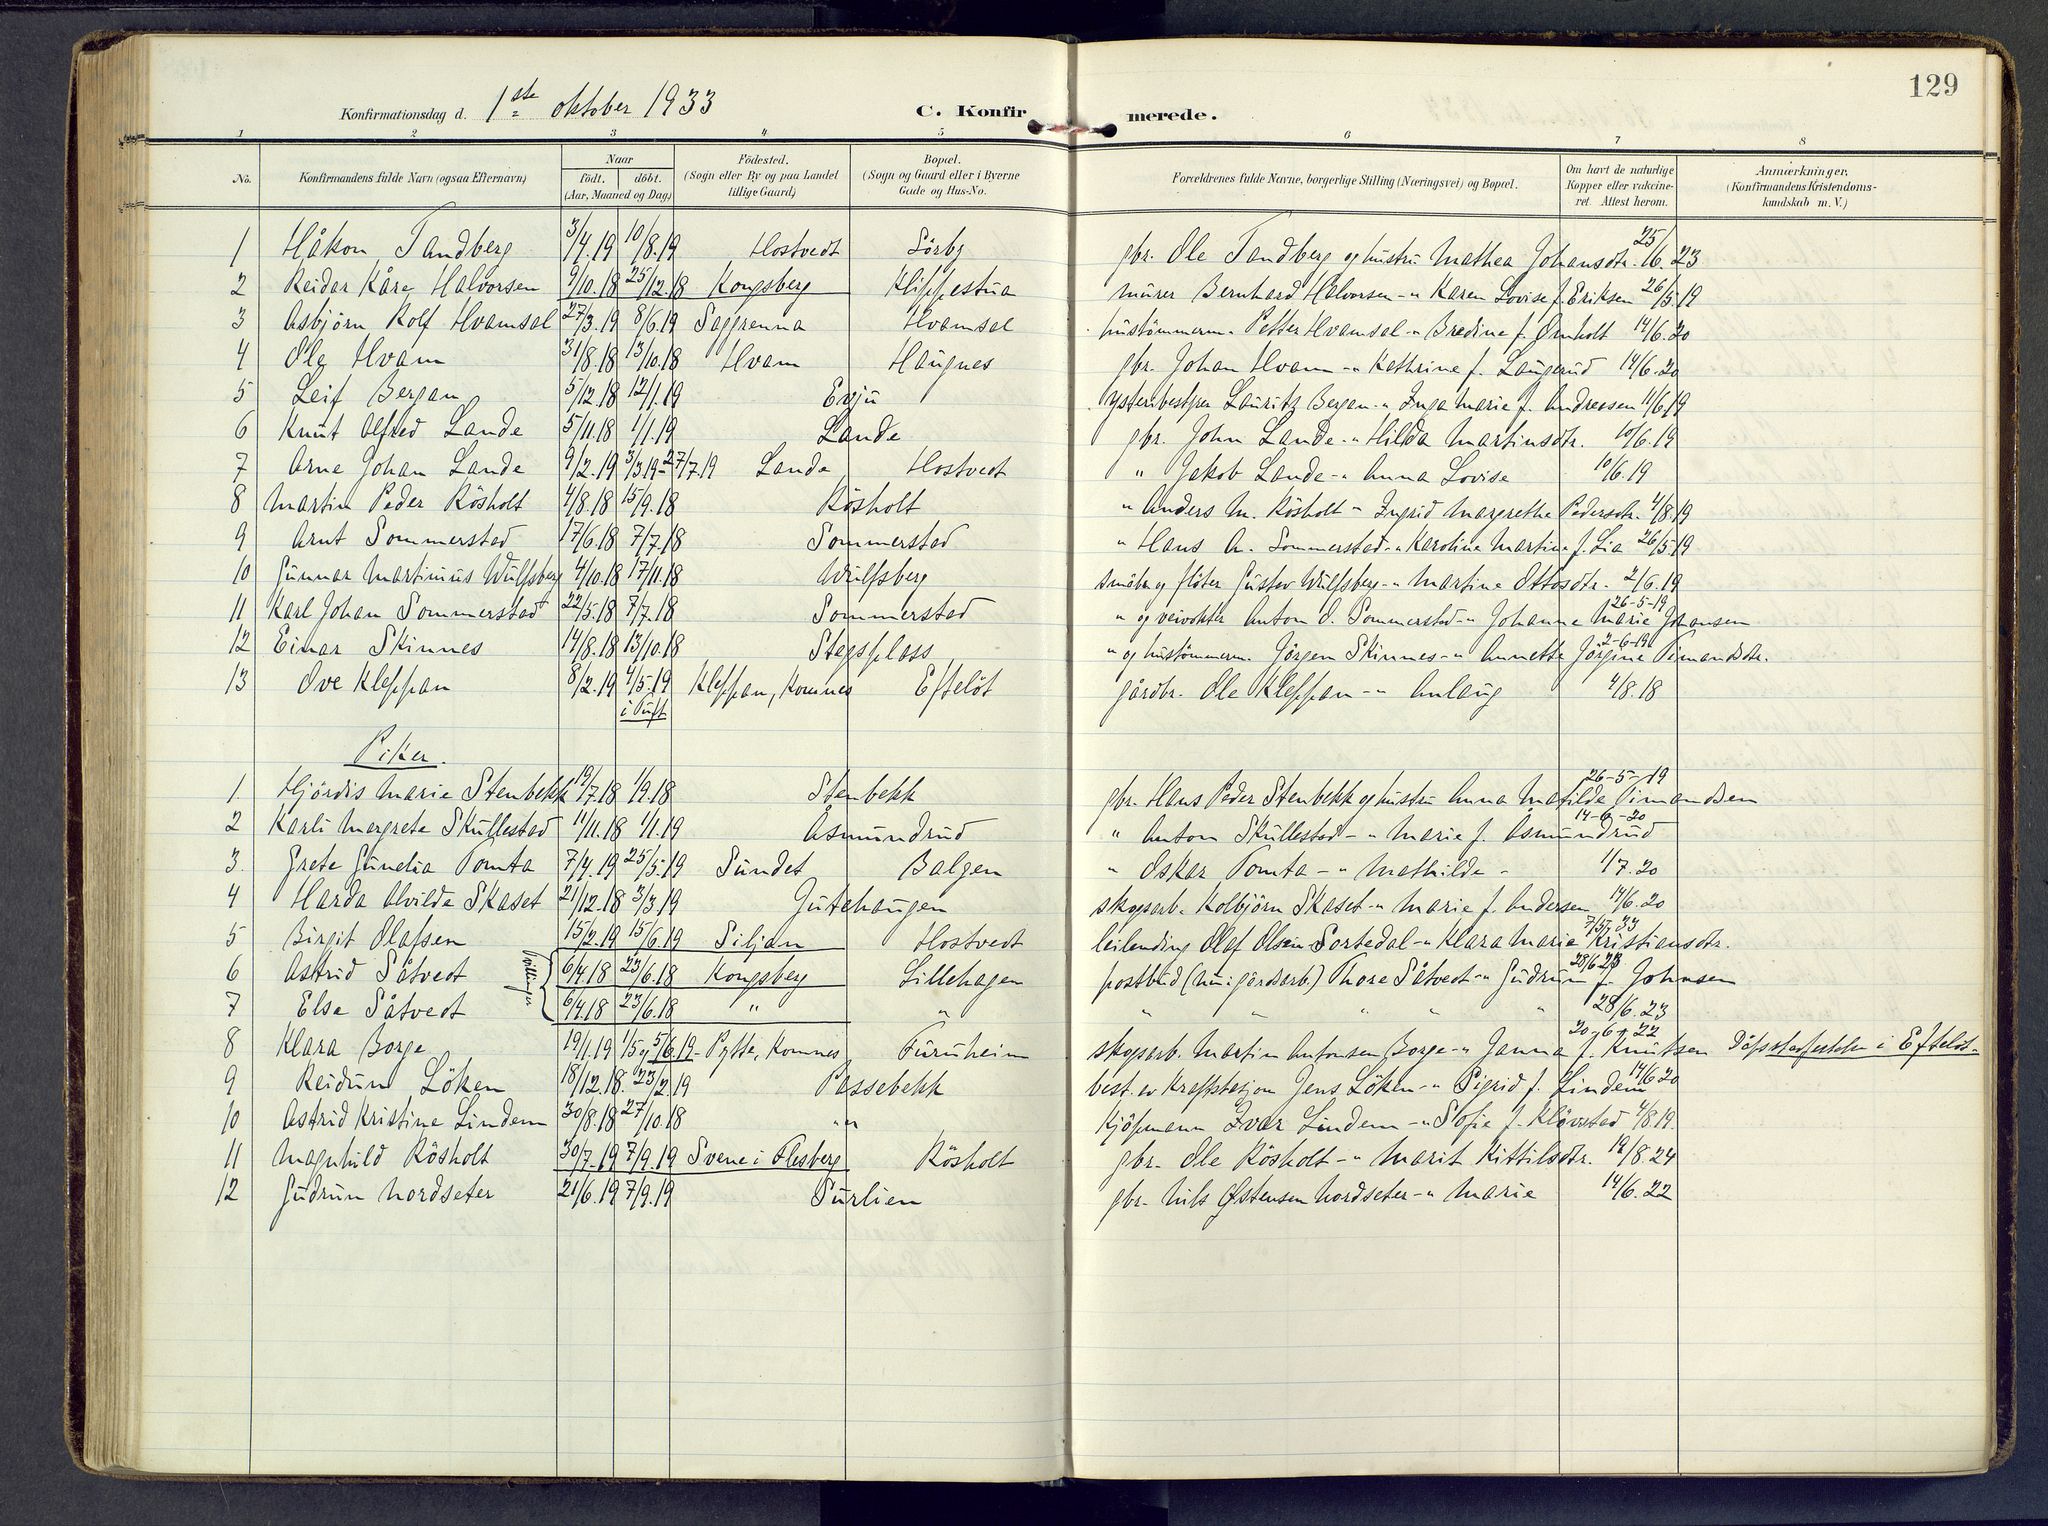 129
Konfirmationsdag d. 1ste oktober 1933 C. Konfirmerede.
1 2 3 4 5 6 7 8
No. Konfirmandens fulde Navn (ogsaa Efternavn) Naar födt. döbt. (Aar, Maaned og Dag) Födested. (Sogn eller By og paa Landet tillige Gaard) Bopæl. (Sogn og Gaard eller i Byerne Gade og Hus-No. Forældrenes fulde Navne, borgerlige Stilling (Næringsvei) og Bopæl. Om havt de naturlige Kopper eller vaccineret. Attest herom. Anmærkninger. (Konfirmandens Kristendomskundskab m. V.)
1 Håkon Tandberg 3/4.19 10/8.19 Hostvedt Sörby gbr. Ole Tandberg og hustru Mathea Johansdtr. 25/6.23
2 Reidar Kåre Halvorsen 9/10.18 25/12.18 Kongsberg Klippestua murer Bernhard Halvorsen -"- Karen Lovise f. Eriksen 26/5.19
3 Asbjörn Rolf Hvamsal 27/3.19 8/6.19 Saggrenna Hvamsal hustömmerm. Petter Hvamsal -"- Bredine f. Ornholt 14/6.20
4 Ole Hvam 31/8.18 13/10.18 Hvam Haugnes gbr. Johan Hvam -"- Kathrine f. Laugerud 14/6.20
5 Leif Bergan 5/12.18 12/1.19 Evju Lauritz Bergan -"- Inga Marie f. Andresen 11/6.19
6 Knut Alfred Lande 5/11.18 1/1.19 Lande gbr. John Lande -"- Hilda Martinsdtr. 10/6.19
7 Arne Johan Lande 9/2.19 3/3.19-27/7.19 Lande Hostvedt " Jakob Lande -"- Anna Lovise 10/6.19
8 Martin Peder Rösholt 4/8.18 15/9.18 Rösholt " Anders M. Rösholt -"- Ingrid Margrethe Pedersdtr. 4/8.19
9 Arnt Sommerstad 17/6.18 7/7.18 Sommerstad " Hans A. Sommerstad -"- Karoline Martine f. Lia 26/5.19
10 Gunnar Martinius Wulfsberg 4/10.18 17/11.18 Wulfsberg småbr. og flöter Gustav Wulfsberg -"- Martine Ottosdtr. 2/6.19
11 Karl Johan Sommerstad 22/5.18 7/7.18 Sommerstad " og veivokter Anton O. Sommerstad -"- Johanne Marie Johansen 26-5-19
12 Einar Skinnes 14/8.18 13/10.18 Stegsplass " og hustömmerm. Jörgen Skinnes -"- Annette Jörgine Timandsdtr. 2-6-19
13 Ove Kleppan 8/2.19 4/5.19 Kleppan, Komnes Eftelöt gårdbr. Ole Kleppan -"- Anlaug 4/8.18
Piker.
1 Hjördis Marie Stenbekk 19/7.18 1/9.18 Stenbekk gbr. Hans Peder Stenbekk og hustru Anna Matilde Timandsen 26-5-19
2 Karli Margrete Skullestad 11/11.18 1/1.19 Åsmundrud " Anton Skullestad -"- Marie f. Åsmundrud 14-6-20
3. Grete Gunelia Tomta 7/4.19 25/5.19 Sundet Balgen " Oskar Tomta -"- Mathilde - 1/7.20
4 Harda Alvilde Skaset 21/12.18 3/3.19 Gutehaugen skogsarb. Kolbjörn Skaset -"- Marie f. Andersen 14/6.20
5 Birgit Olafsen 15/2.19 15/6.19 Siljan Hostvedt leilending Olaf Olsen Sortedal -"- Klara Marie Kristiansdtr. 7/5.33
6 Astrid Såtvedt Tvillinger 6/4.18 23/6.18 Kongsberg Lillehagen postbud (nu: gårdsarb.) Thore Såtvedt -"- Gudrun f. Johnsen 28/6.23
7 Else Såtvedt 6/4.18 23/6.18 " " " " " " " 28/6.23
8 Klara Borge 19/1.19 1/5 og 5/6.19 - Pytte, Komnes Furuheim skogsarb. Martin Antonsen Borge -"- Janna f. Knutsen 20-6-22 Dåpsstadfestelse i Eftelöt
9 Reidun Löken 18/12.18. 23/2.19 Passebekk best. av kraftstasjon Jens Löken -"- Sigrid f. Lindem 14/6.20
10 Astrid Kristine Lindem 30/8.18 27/10.18 " Kjöpmann Ivar Lindem -"- Sofie f. Klövstad 4/8.19.
11 Magnhild Rösholt 30/7.19 7/9.19 Svene i Flesberg Rösholt gbr. Ole Rösholt -"- Marit Kittilsdtr. 12/8.24
12 Gudrun Nordseter 21/6.19 7/9.19 Surlien gbr. Nils Østensen Nordseter -"- Marie 14/6.22